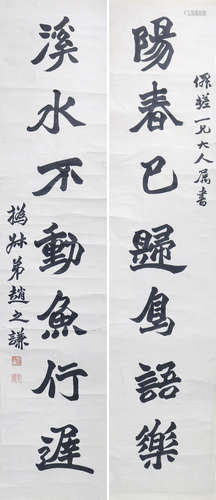 陽春已歸鳥語樂
一兄大人属書
溪水不動魚行遲
撝叔弟趙之謙